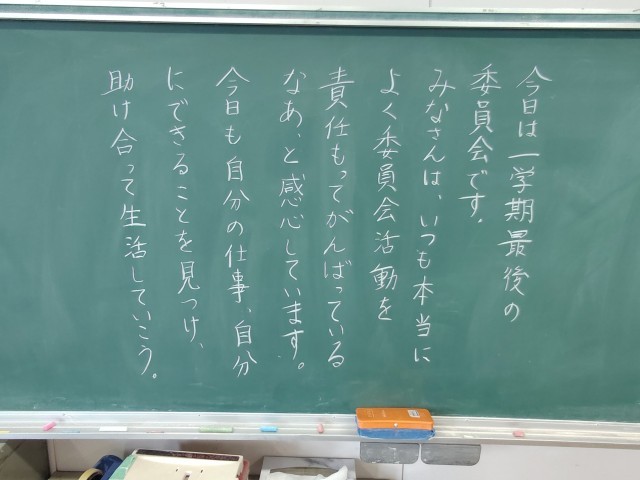 今日は一学期最後の
委員会です。
みなさんは、いつも本当に
よく委員会活動を
責任もってがんばっている
なあ、と感心しています。
今日も自分の仕事、自分
にできることを見つけ、
助け合って生活していこう。